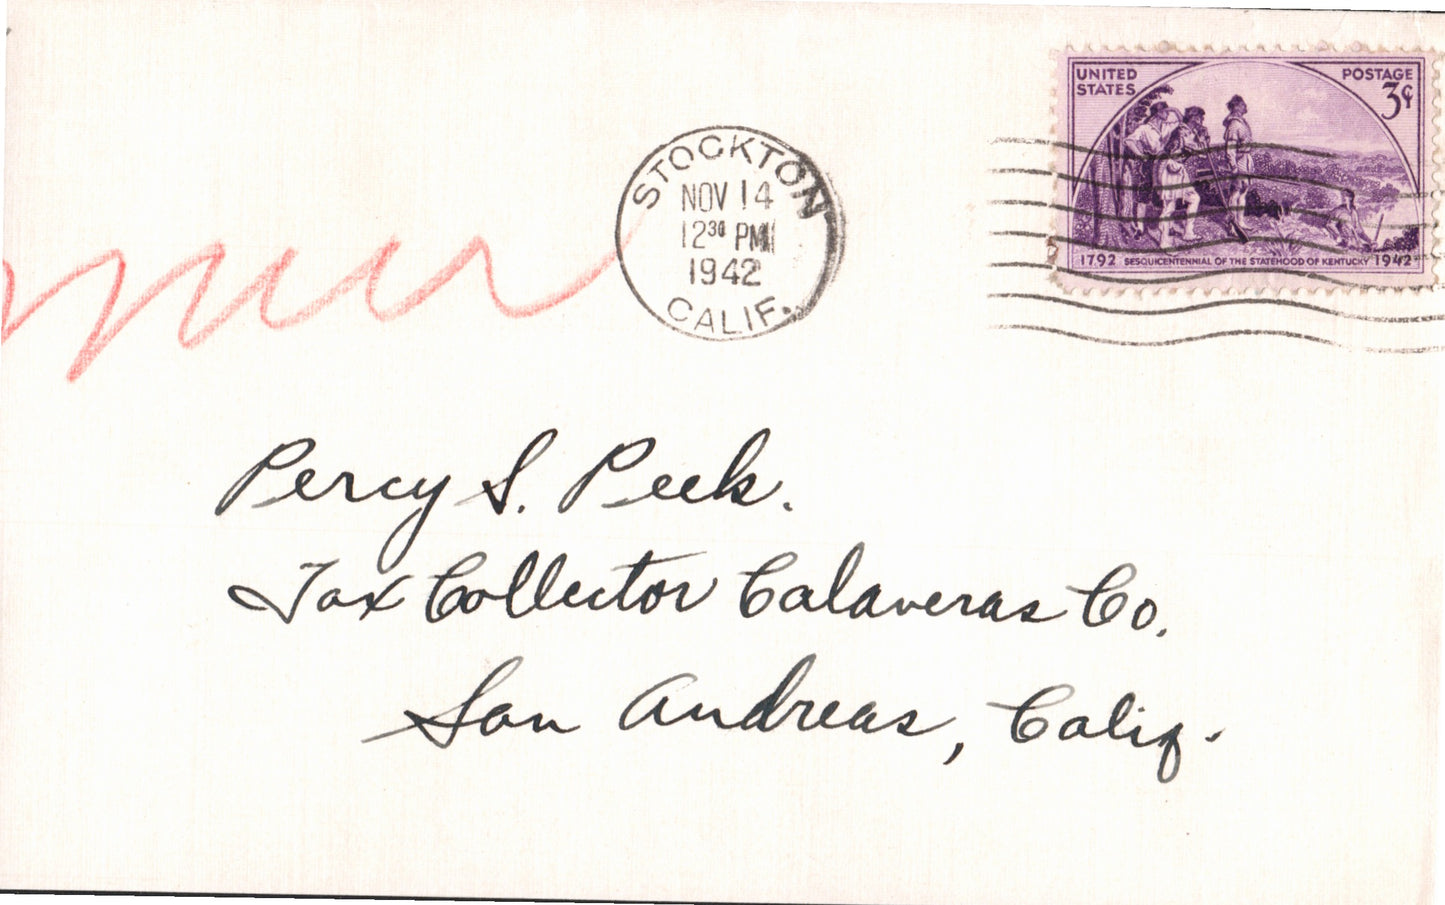 UNITED STATES
POSTAGE
3¢
STOCKTON
NOV 14
12 30 PM
1942
CALIF.
1792 SESQUICENTENNIAL OF THE STATEHOOD OF KENTUCKY 1942
Percy S. Peek.
Tax Collector Calaveras Co.
San Andreas, Calif.